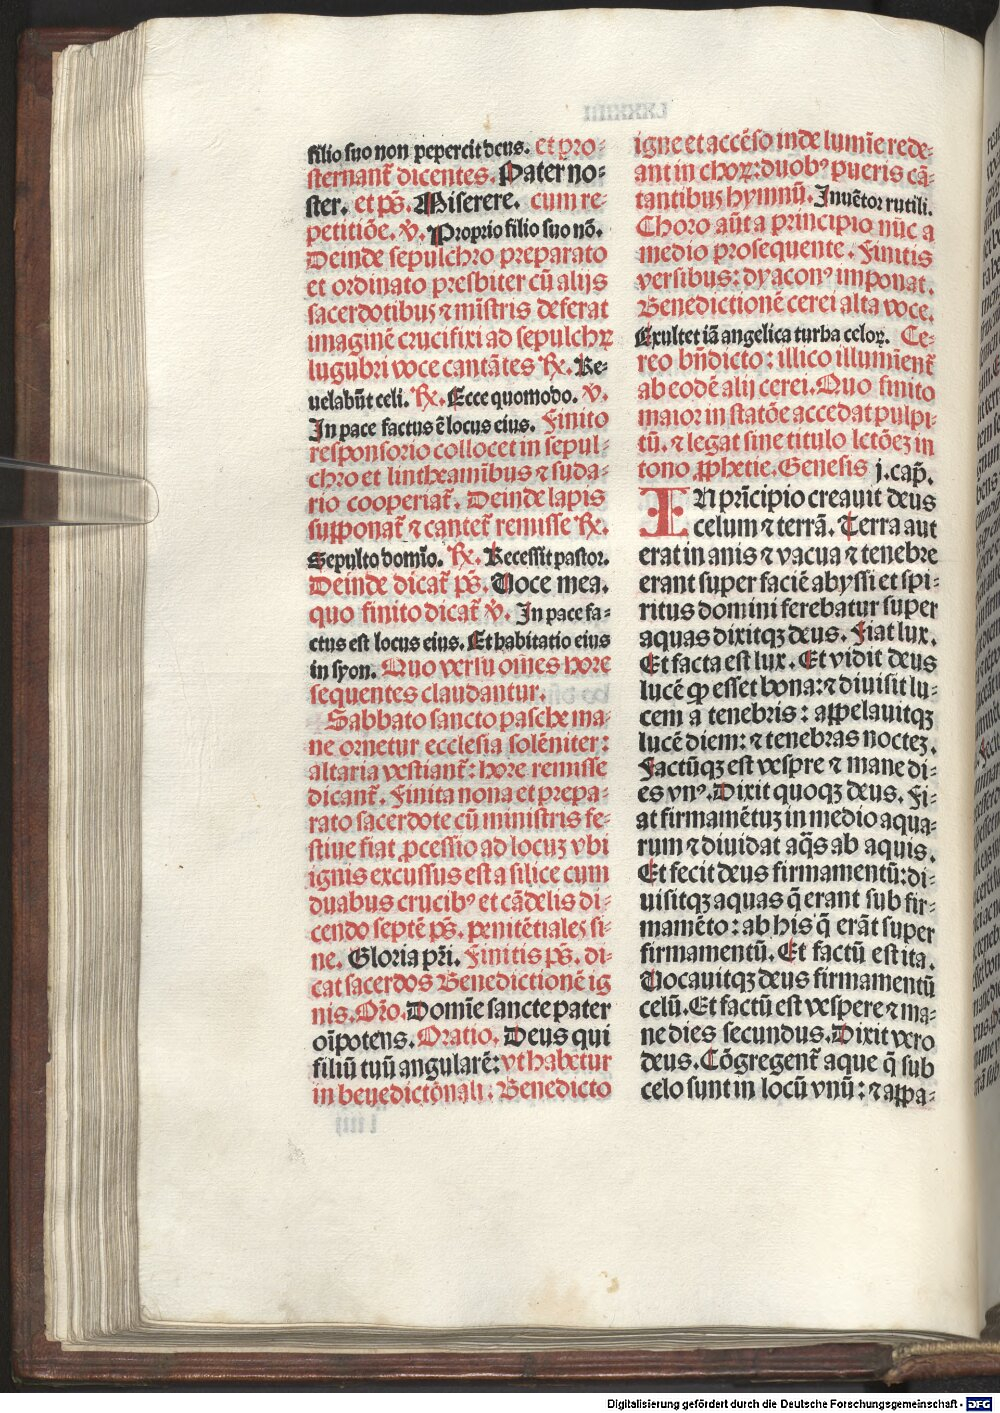 filio suo non pepercit deus. et pro-
sternant᷑ dicentes. Pater no-
ster. et ps̄. Miserere. cum re-
petitiōe. v̄. Proprio filio suo nō.
Deinde sepulchro preparato
et ordinato p̄sbiter cū alijs
sacerdotibus ⁊ mīstris deferat
imaginē crucifixi ad sepulchꝝ
lugubri voce cantātes ℟. Re-
uelabūt celi. ℟. Ecce quomodo. v̄.
In pace factus ē locus eius. Finito
responsorio collocet in sepul-
chro et lintheamībus ⁊ suda-
rio cooperiat᷑. Deinde lapis
supponat᷑ ⁊ cantet᷑ remisse ℟.
Sepulto domīo. ℟. Recessit pastor.
Deinde dicat᷑ ps̄. Uoce mea.
quo finito dicat᷑ v̄. In pace fa-
ctus est locus eius. Et habitatio eius
in syon. Quo versu oīnes hore
sequentes claudantur.
Sabbato sancto pasche ma-
ne ornetur ecclesia solēniter:
altaria vestiant᷑: hore remisse
dicant᷑. Finita nona et prepa-
rato sacerdote cū ministris fe-
stiue fiat ꝓcessio ad locuꝫ vbi
ignis excussus est a silice cum
duabus crucibꝰ et cādelis di-
cendo septē ps̄. penitētiales si-
ne. Gloria pr̄i. Finitis ps̄. di-
cat sacerdos Benedictionē ig
nis. Or̄o. Domīe sancte pater
oīpotens. Oratio. Deus qui
filiū tuū angularē: vt habetur
in benedictōnali. Benedicto
igne et accēso inde lumīe rede-
ant in choꝝ: duobꝰ pueris cā-
tantibus hymnū. Inuētor rutili.
Choro aūt a principio nūc a
medio prosequente. Finitis
versibus: dyaconꝰ imponat.
Benedictionē cerei alta voce.
Exultet iā angelica turba celoꝝ. Ce-
reo bn̄dicto: illico illumīent᷑
ab eodē alij cerei. Quo finito
maior in statōe accedat pulpi-
tū. ⁊ legat sine titulo lctōeꝫ in
tono ꝓphetie. Genesis j. cap̄.
IN prīcipio creauit deus
celum ⁊ terrā. Terra aut
erat in anis ⁊ vacua ⁊ tenebre
erant super faciē abyssi et spi-
ritus domini ferebatur super
aquas dixitqꝫ deus. Fiat lux.
Et facta est lux. Et vidit deus
lucē ꝙ esset bona: ⁊ diuisit lu-
cem a tenebris: appelauitqꝫ
lucē diem: ⁊ tenebras nocteꝫ.
Factūqꝫ est vespre ⁊ mane di-
es vnꝰ. Dixit quoqꝫ deus. Fi-
at firmamētuꝫ in medio aqua-
rum ⁊ diuidat aq̄s ab aquis.
Et fecit deus firmamentū: di-
uisitqꝫ aquas q̄ erant sub fir-
mamēto: ab his q̄ erāt super
firmamentū. Et factū est ita.
Uocauitqꝫ deus firmamentū
celū. Et factū est vespere ⁊ ma-
ne dies secundus. Dixit vero
deus. Cōgregent᷑ aque q̄ sub
celo sunt in locū vnū: ⁊ appa-
Digitalisierung gefördert durch die Deutsche Forschungsgemeinschaft - DFG